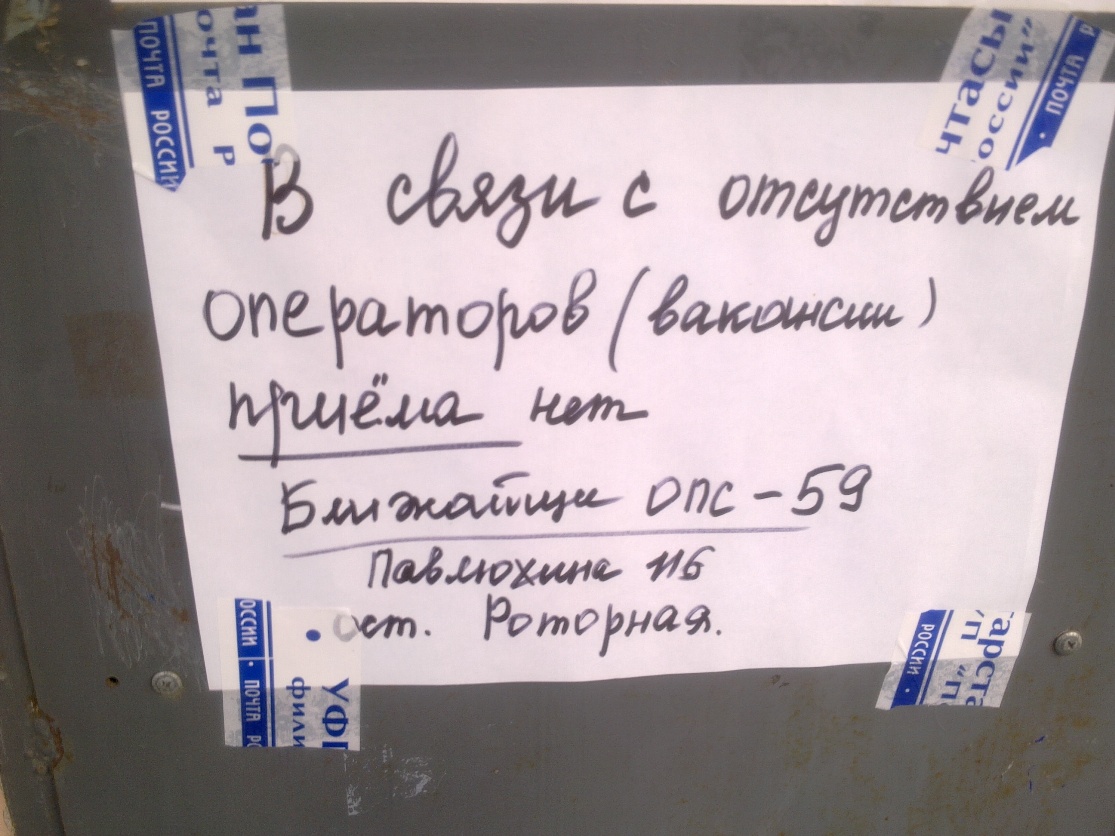 ПОЧТА РОССИИ
ан По
очта Р
чтасы
оссии"
• ПОЧТА Р
В связи с отсутствием
операторов (вакансии)
приёма нет
Ближайщи ОПС - 59
Павлюхина 116
ост. Роторная.
ОССИИ • ПОЧТА РО
УФП
фили
РОССИИ •
тарста
"П